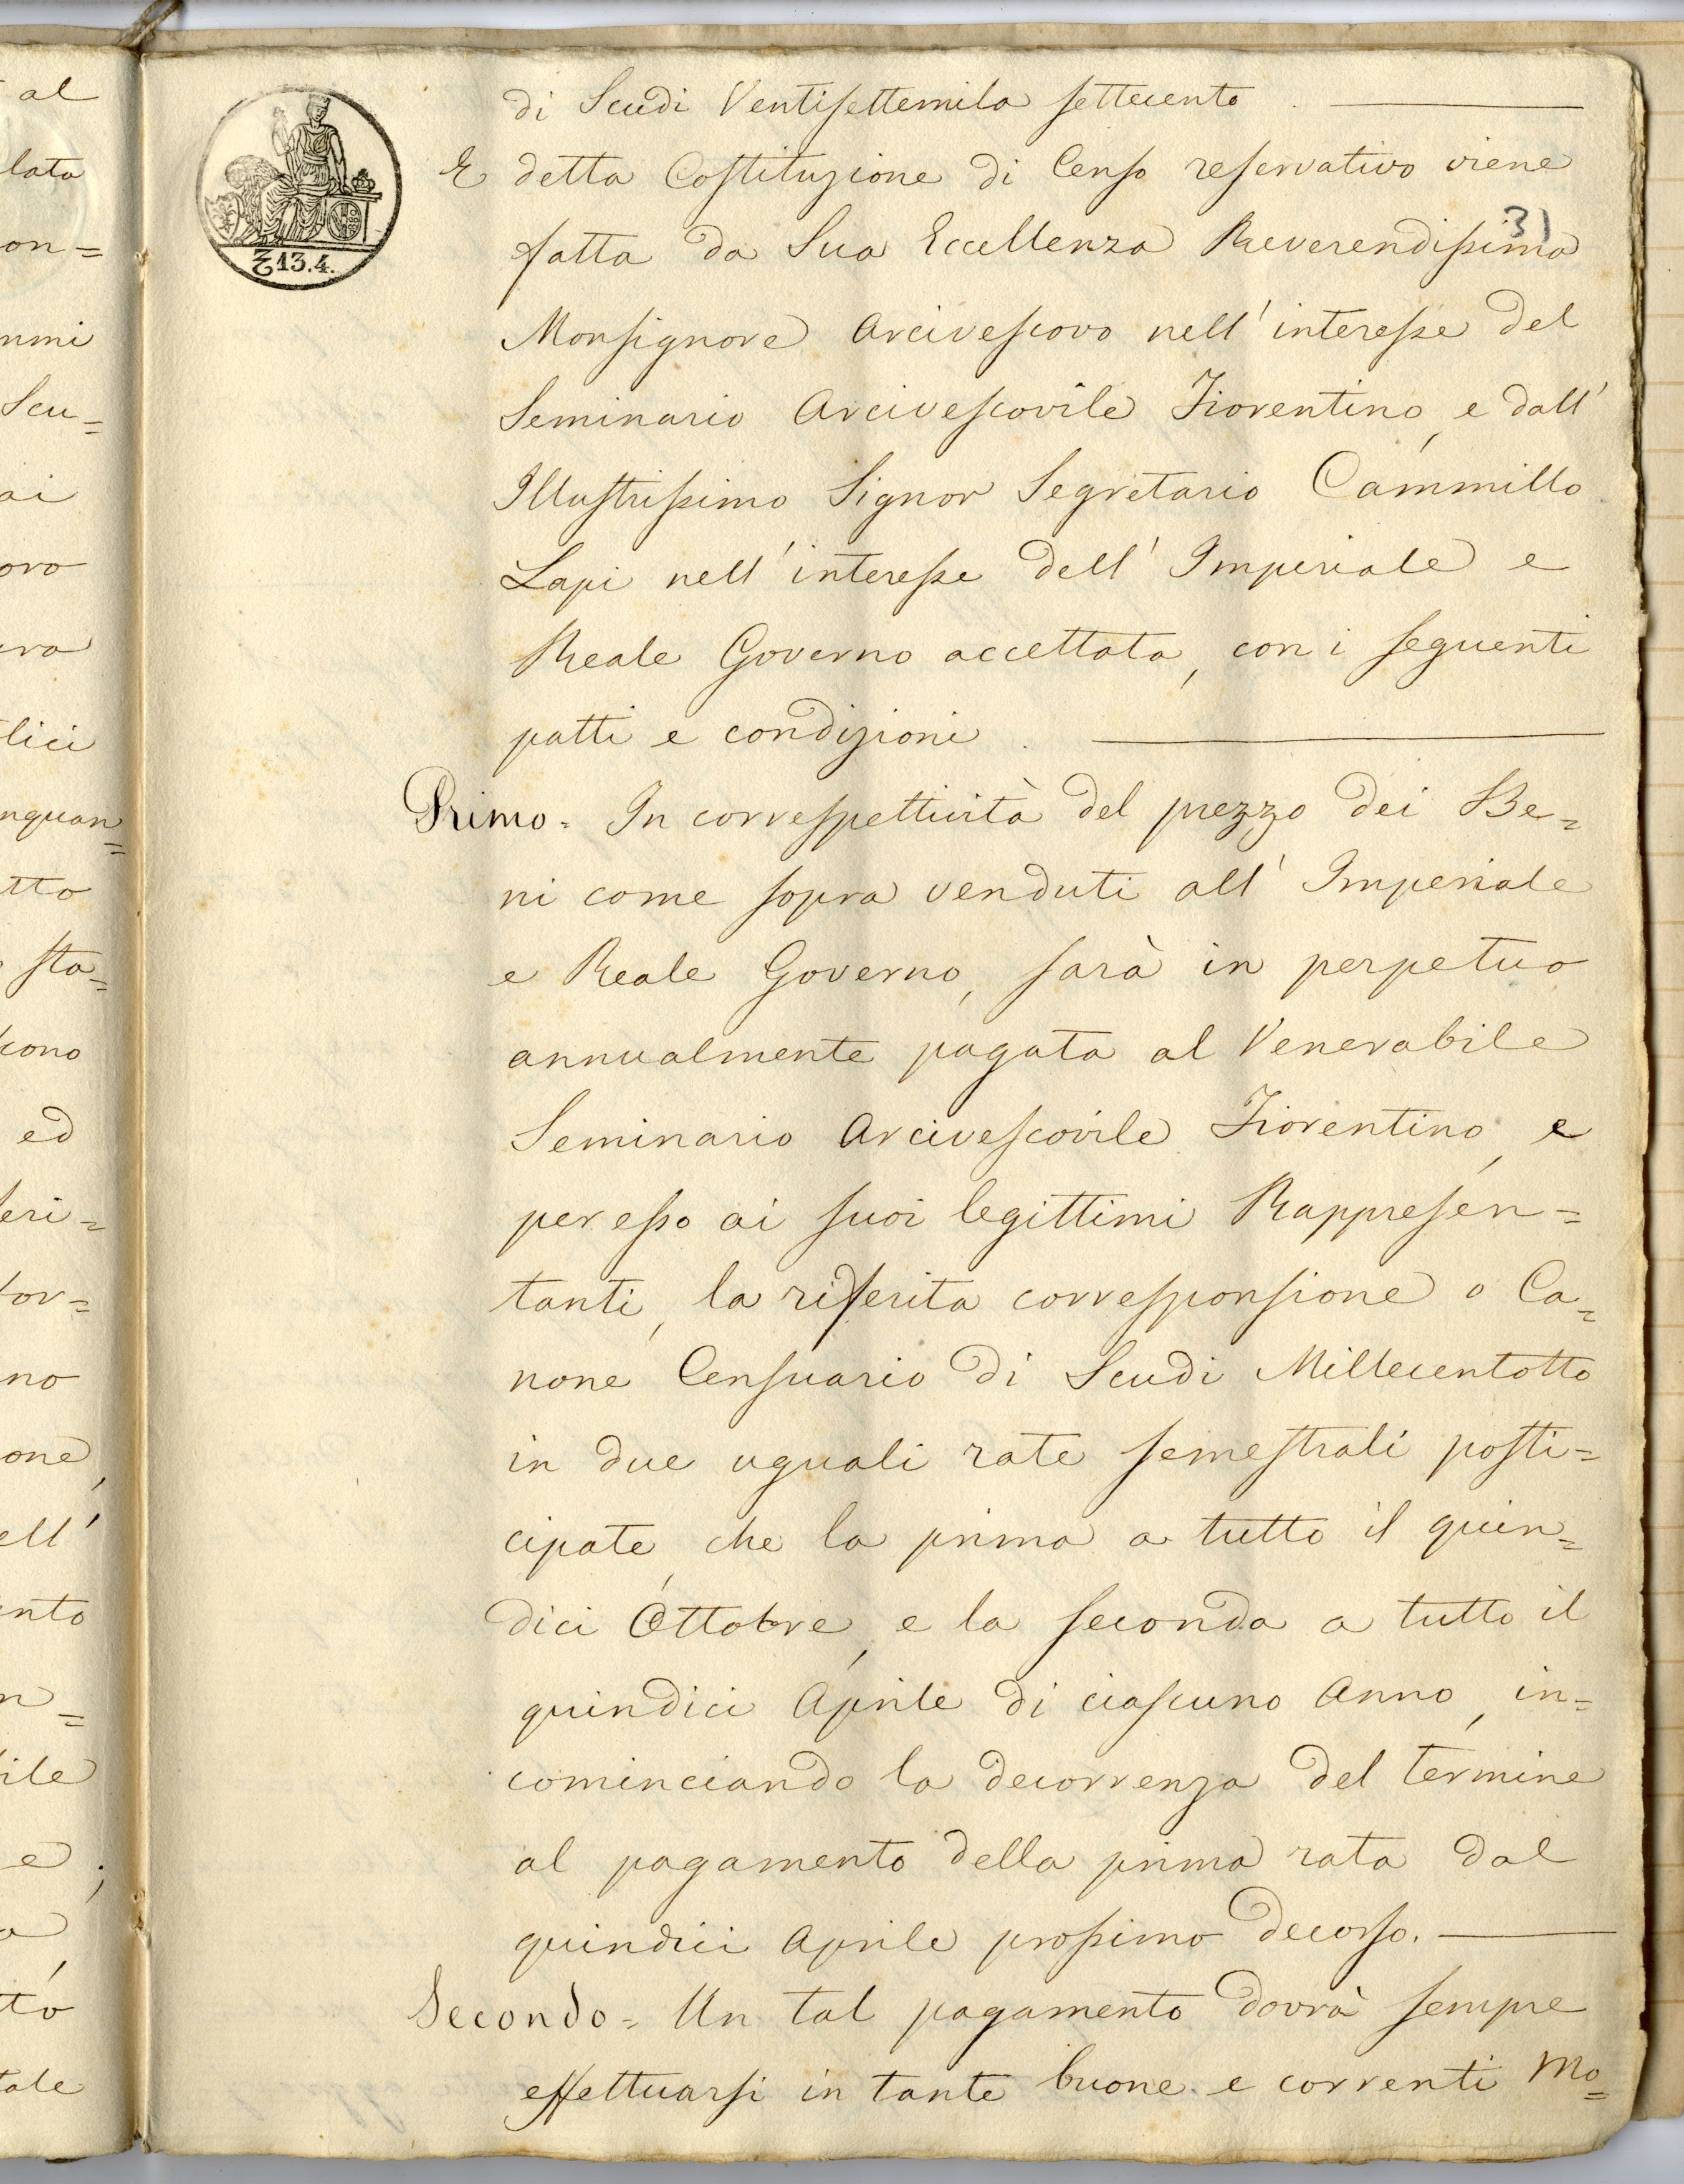 al
lata
on=
mmi
Scu=
ai
ovo
iva
lici
nquan=
tto
sta=
scono
ed
feri=
for=
no
one,
ell'
ento
n=
ile
e;
a,
to
tale
₤13.4.
31
di Scudi Ventisettemila settecento.
E detta Costituzione di Censo reservativo viene
fatta da Sua Eccellenza Reverendissima
Monsignore Arcivescovo nell' interesse del
Seminario Arcivescovile Fiorentino, e dall'
Illustrissimo Signor Segretario Cammillo
Lapi nell' interesse dell' Imperiale e
Reale Governo accettata, con i seguenti
patti e condizioni.
Primo = In correspettività del prezzo dei Be=
ni come sopra venduti all' Imperiale
e Reale Governo, sarà in perpetuo
annualmente pagata al Venerabile
Seminario Arcivescovile Fiorentino, e
per esso ai suoi legittimi Rappresen=
tanti, la riferita corresponsione o Ca=
none Censuario di Scudi Millecentotto
in due uguali rate semestrali posti=
cipate, che la prima a tutto il quin=
dici Ottobre, e la seconda a tutto il
quindici Aprile di ciascuno Anno, in=
cominciando la decorrenza del termine
al pagamento della prima rata dal
quindici Aprile prossimo decorso.
Secondo = Un tal pagamento dovrà sempre
effettuarsi in tante buone e correnti Mo=